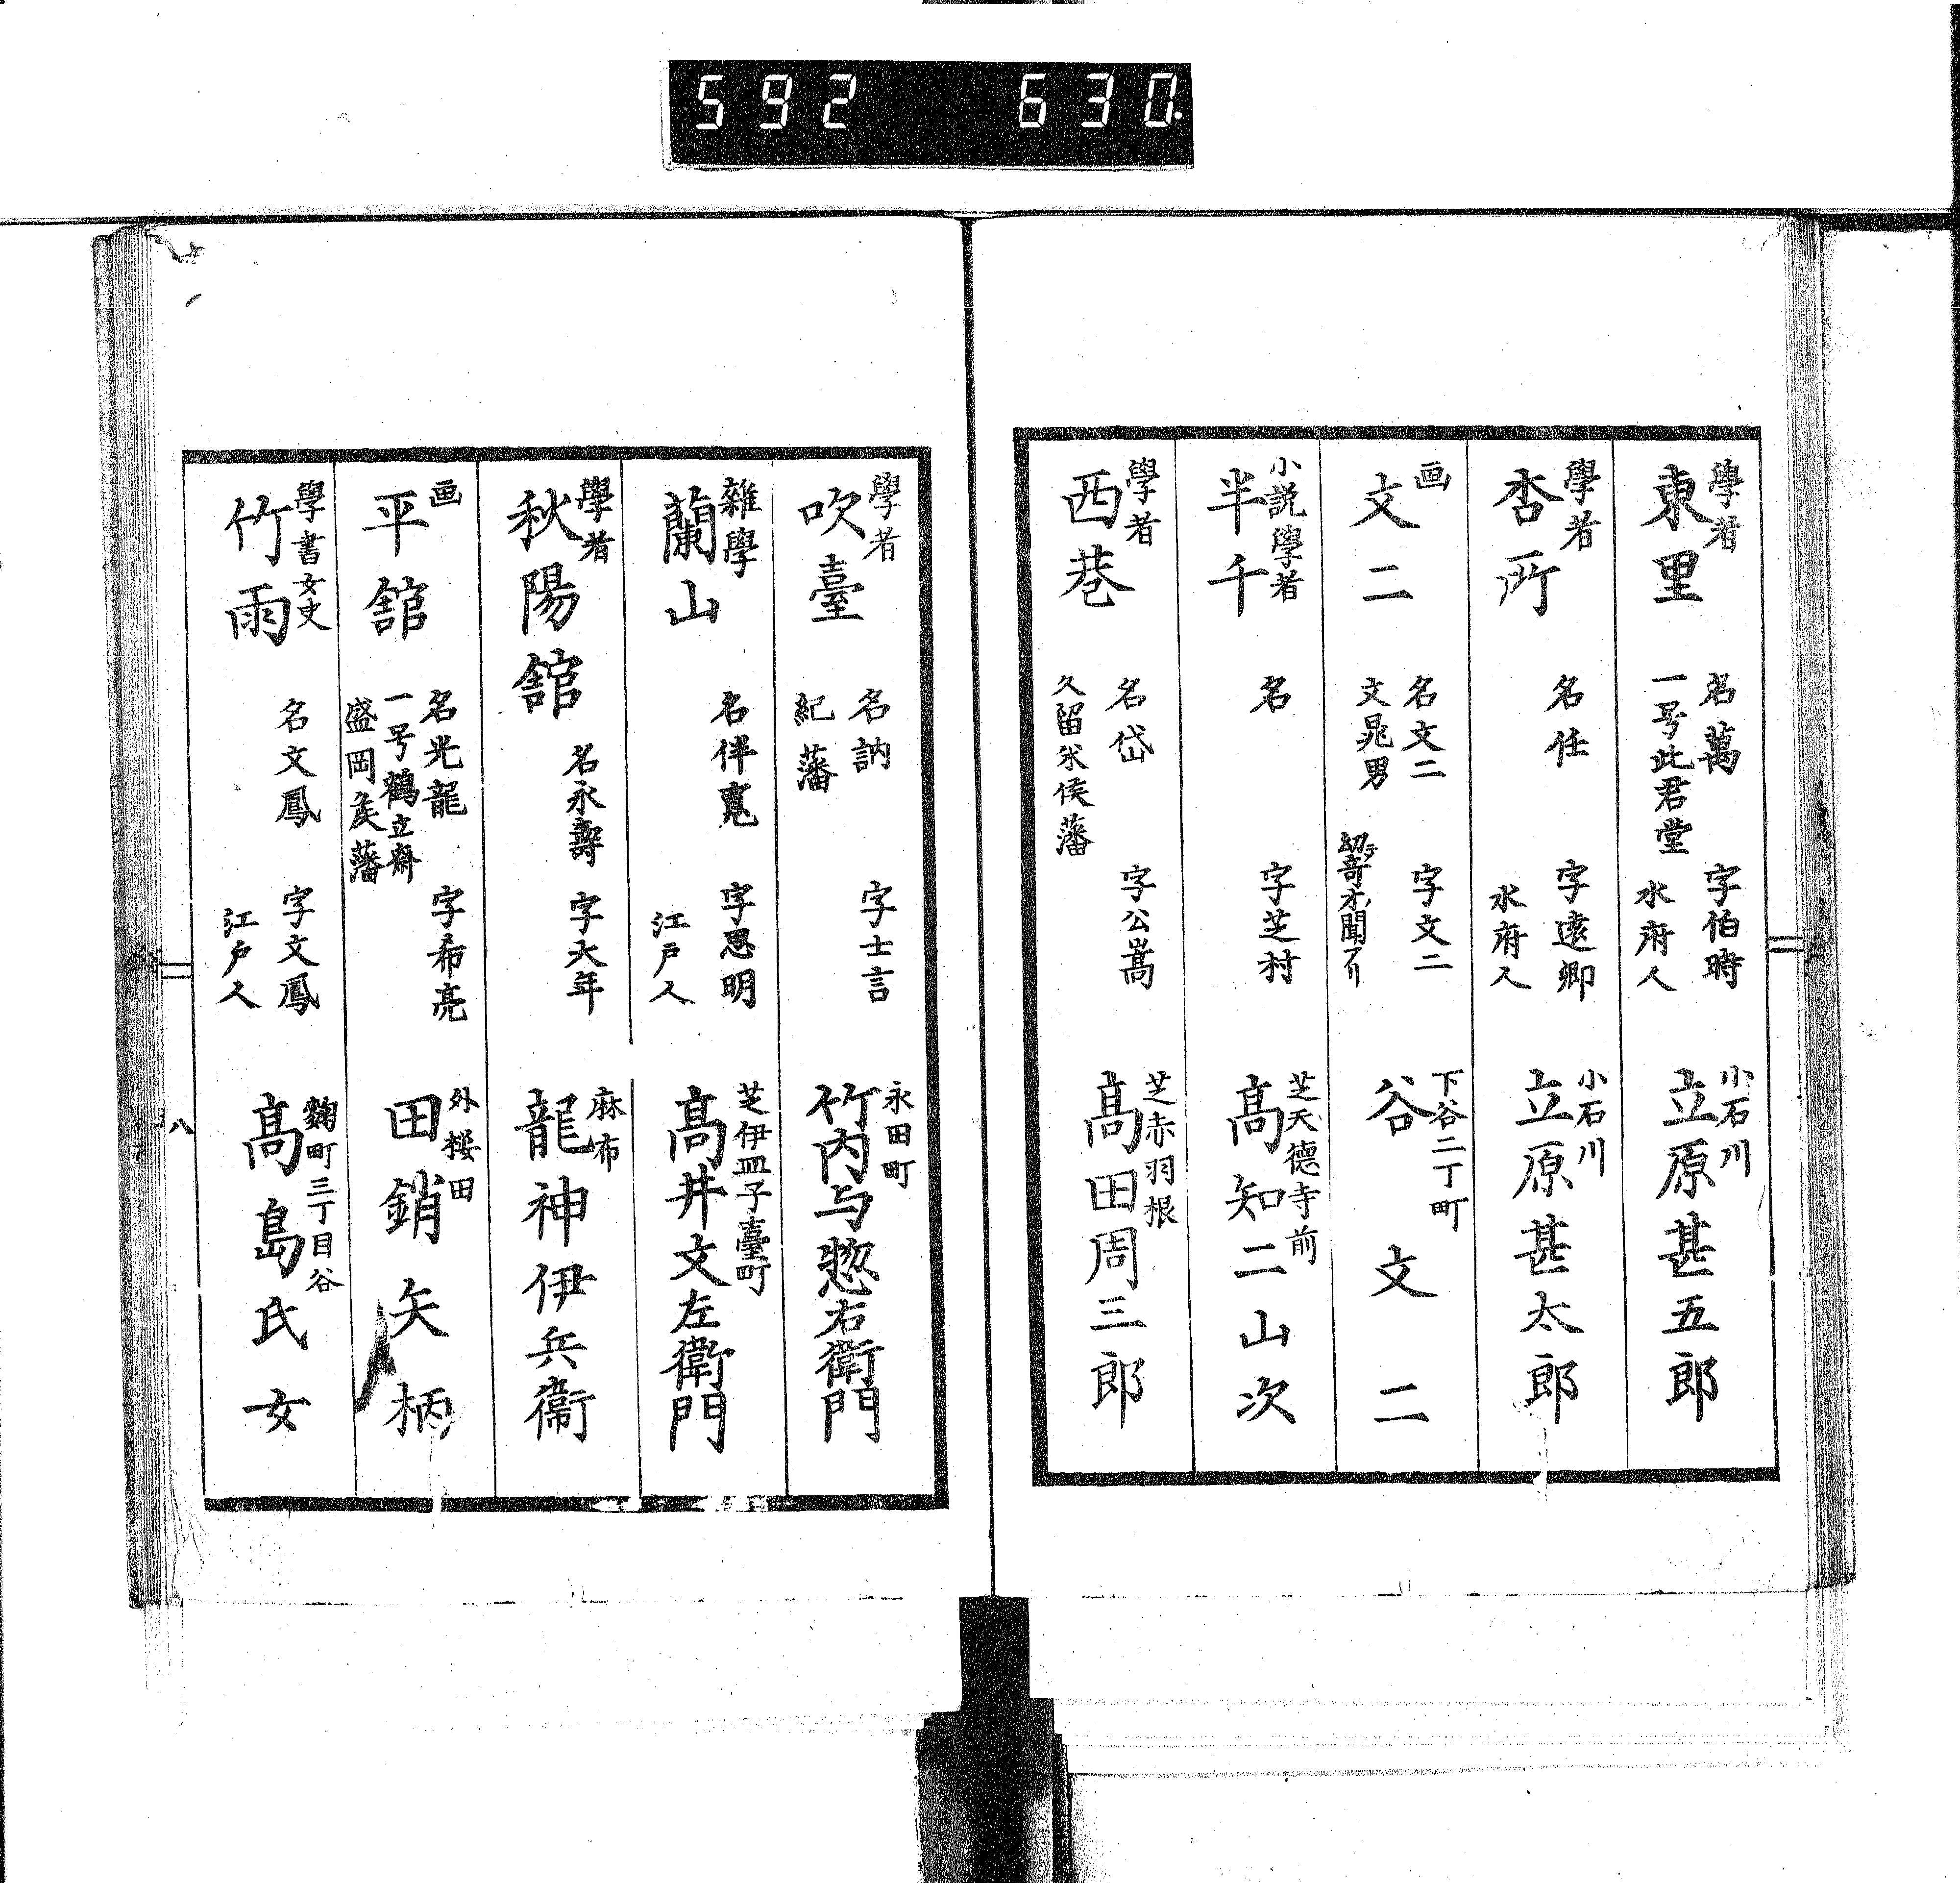 592 630.
學者
東里
名萬 字伯時
一号此君堂 水府人
小石川
立原甚五郎
學者
杏所
名任 字遠卿
水府人
小石川
立原甚太郎
画
文二
名文二 字文二
文晁男 幼ヨリ奇才ノ聞アリ
下谷二丁町
谷文二
小説學者
半千
名 字芝村
芝天德寺前
髙知二山次
學者
西巷
名岱 字公嵩
久留米侯藩
芝赤羽根
髙田周三郎
學者
吹臺
名訥 字士言
紀藩
永田町
竹内与惣右衛門
雜學
蘭山
名伴寬 字思明
江戸人
芝伊皿子臺町
髙井文左衛門
學者
秋陽舘
名永壽 字大年
麻布
龍神伊兵衞
画
平舘
名光龍 字希亮
一号鶴立齋
盛岡矦藩
外桜田
田鎖矢柄
學書女史
竹雨
名文鳳 字文鳳
江戸人
麹町三丁目谷
髙島氏女
八